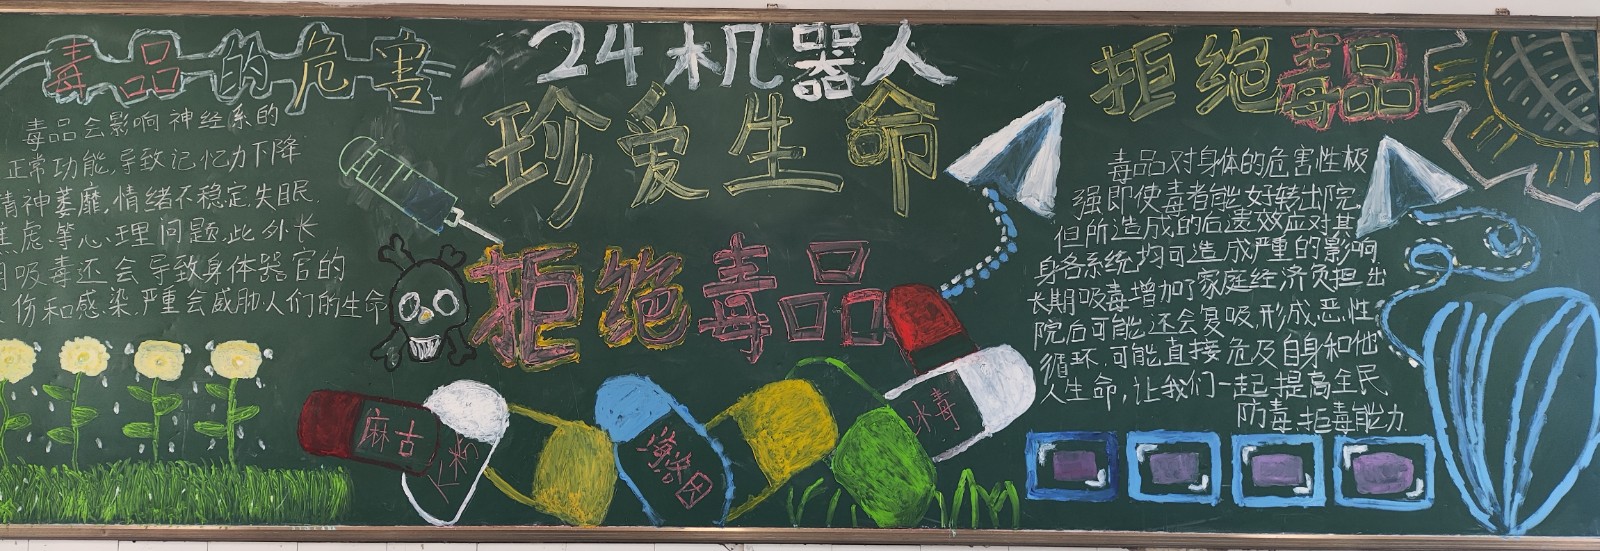 毒品的危害
毒品会影响神经系的
正常功能,导致记忆力下降
精神萎靡,情绪不稳定,失眠,
焦虑等心理问题,此外长
期吸毒还会导致身体器官的
伤和感染,严重会威胁人们的生命
24机器人
珍爱生命
拒绝毒品
麻古
海洛因
冰毒
拒绝毒品
毒品对身体的危害性极
强即使毒者能好转出院,
但所造成的后遗效应对其
身各系统均可造成严重的影响
长期吸毒增加了家庭经济负担出
院后可能还会复吸,形成恶性
循环,可能直接危及自身和他
人生命,让我们一起提高全民
防毒拒毒能力.